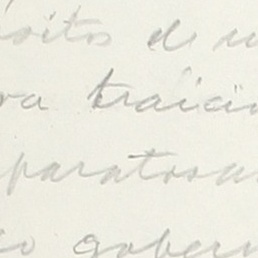 sitos de
ra traició
paratosa
io gobern